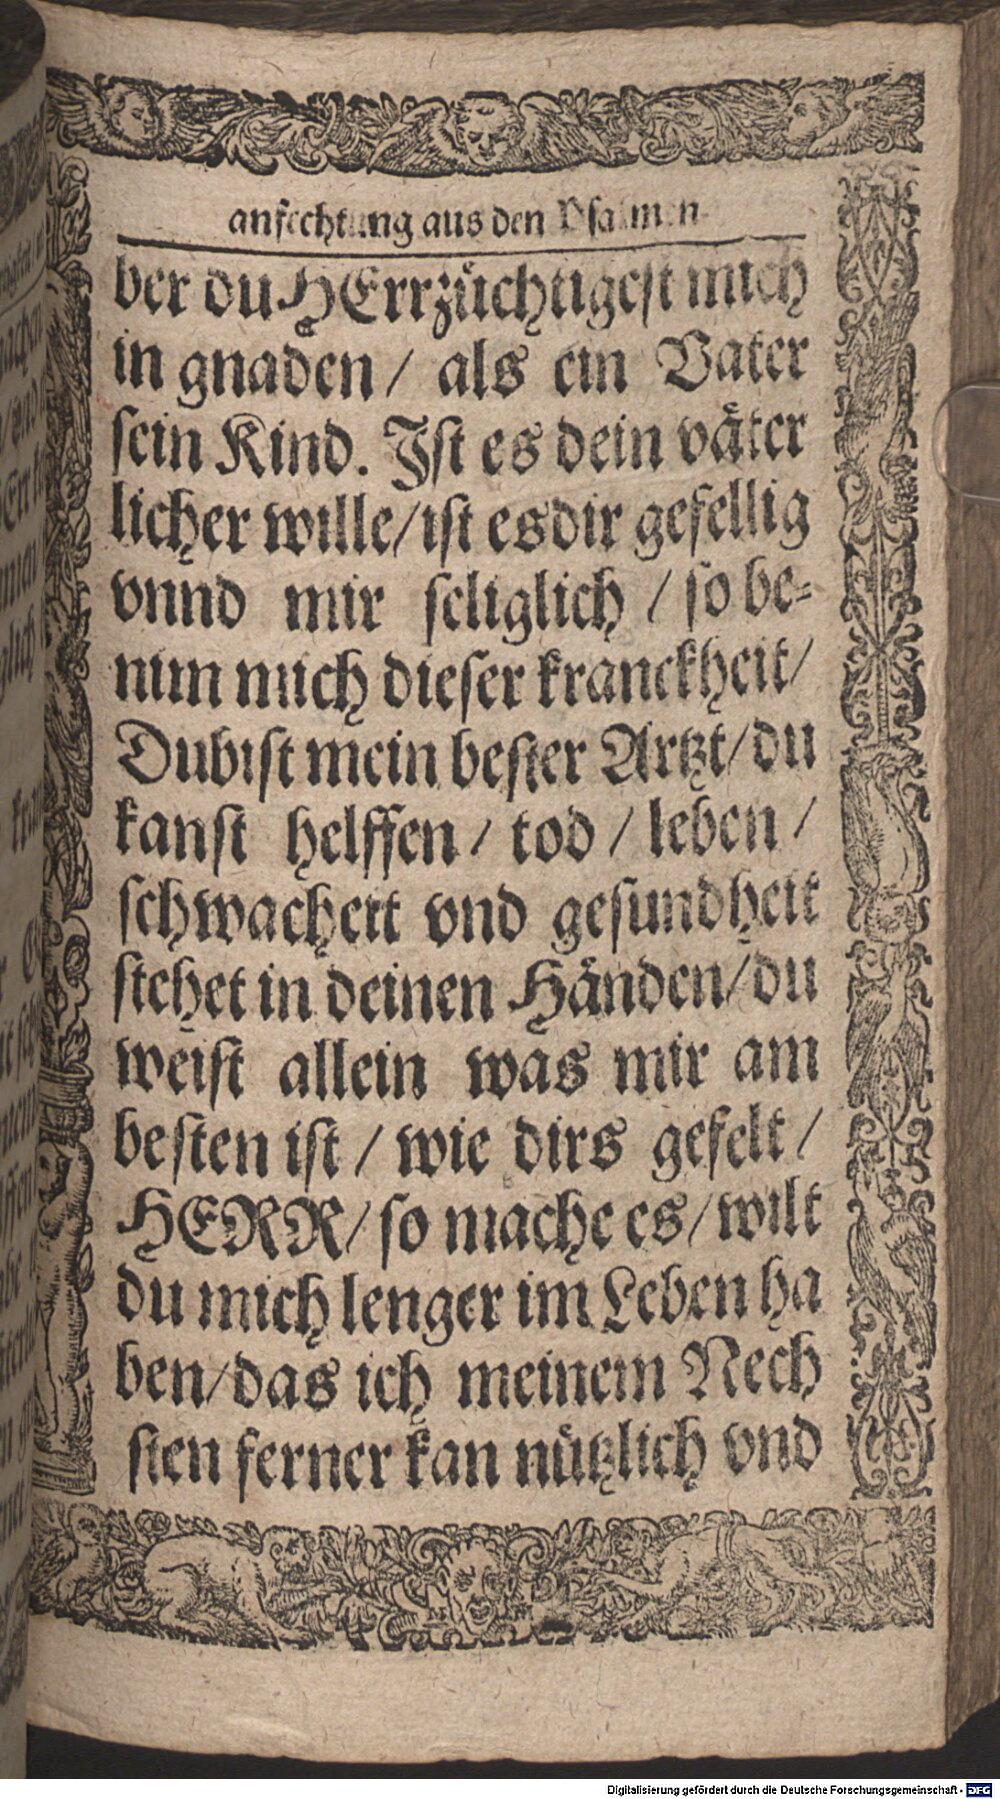 anfechtung aus den Psalmen
ber du HErr züchtigest mich
in gnaden / als ein Vater
sein Kind. Ist es dein väter
licher wille / ist es dir gefellig
vnnd mir seliglich / so be-
nim mich dieser kranckheit /
Du bist mein bester Artzt / du
kanst helffen / tod / leben /
schwacheit vnd gesundheit
stehet in deinen Händen / du
weist allein was mir am
besten ist / wie dirs gefelt /
HERR / so mache es / wilt
du mich lenger im Leben ha
ben / das ich meinem Nech
sten ferner kan nützlich vnd
Digitalisierung gefördert durch die Deutsche Forschungsgemeinschaft - DFG